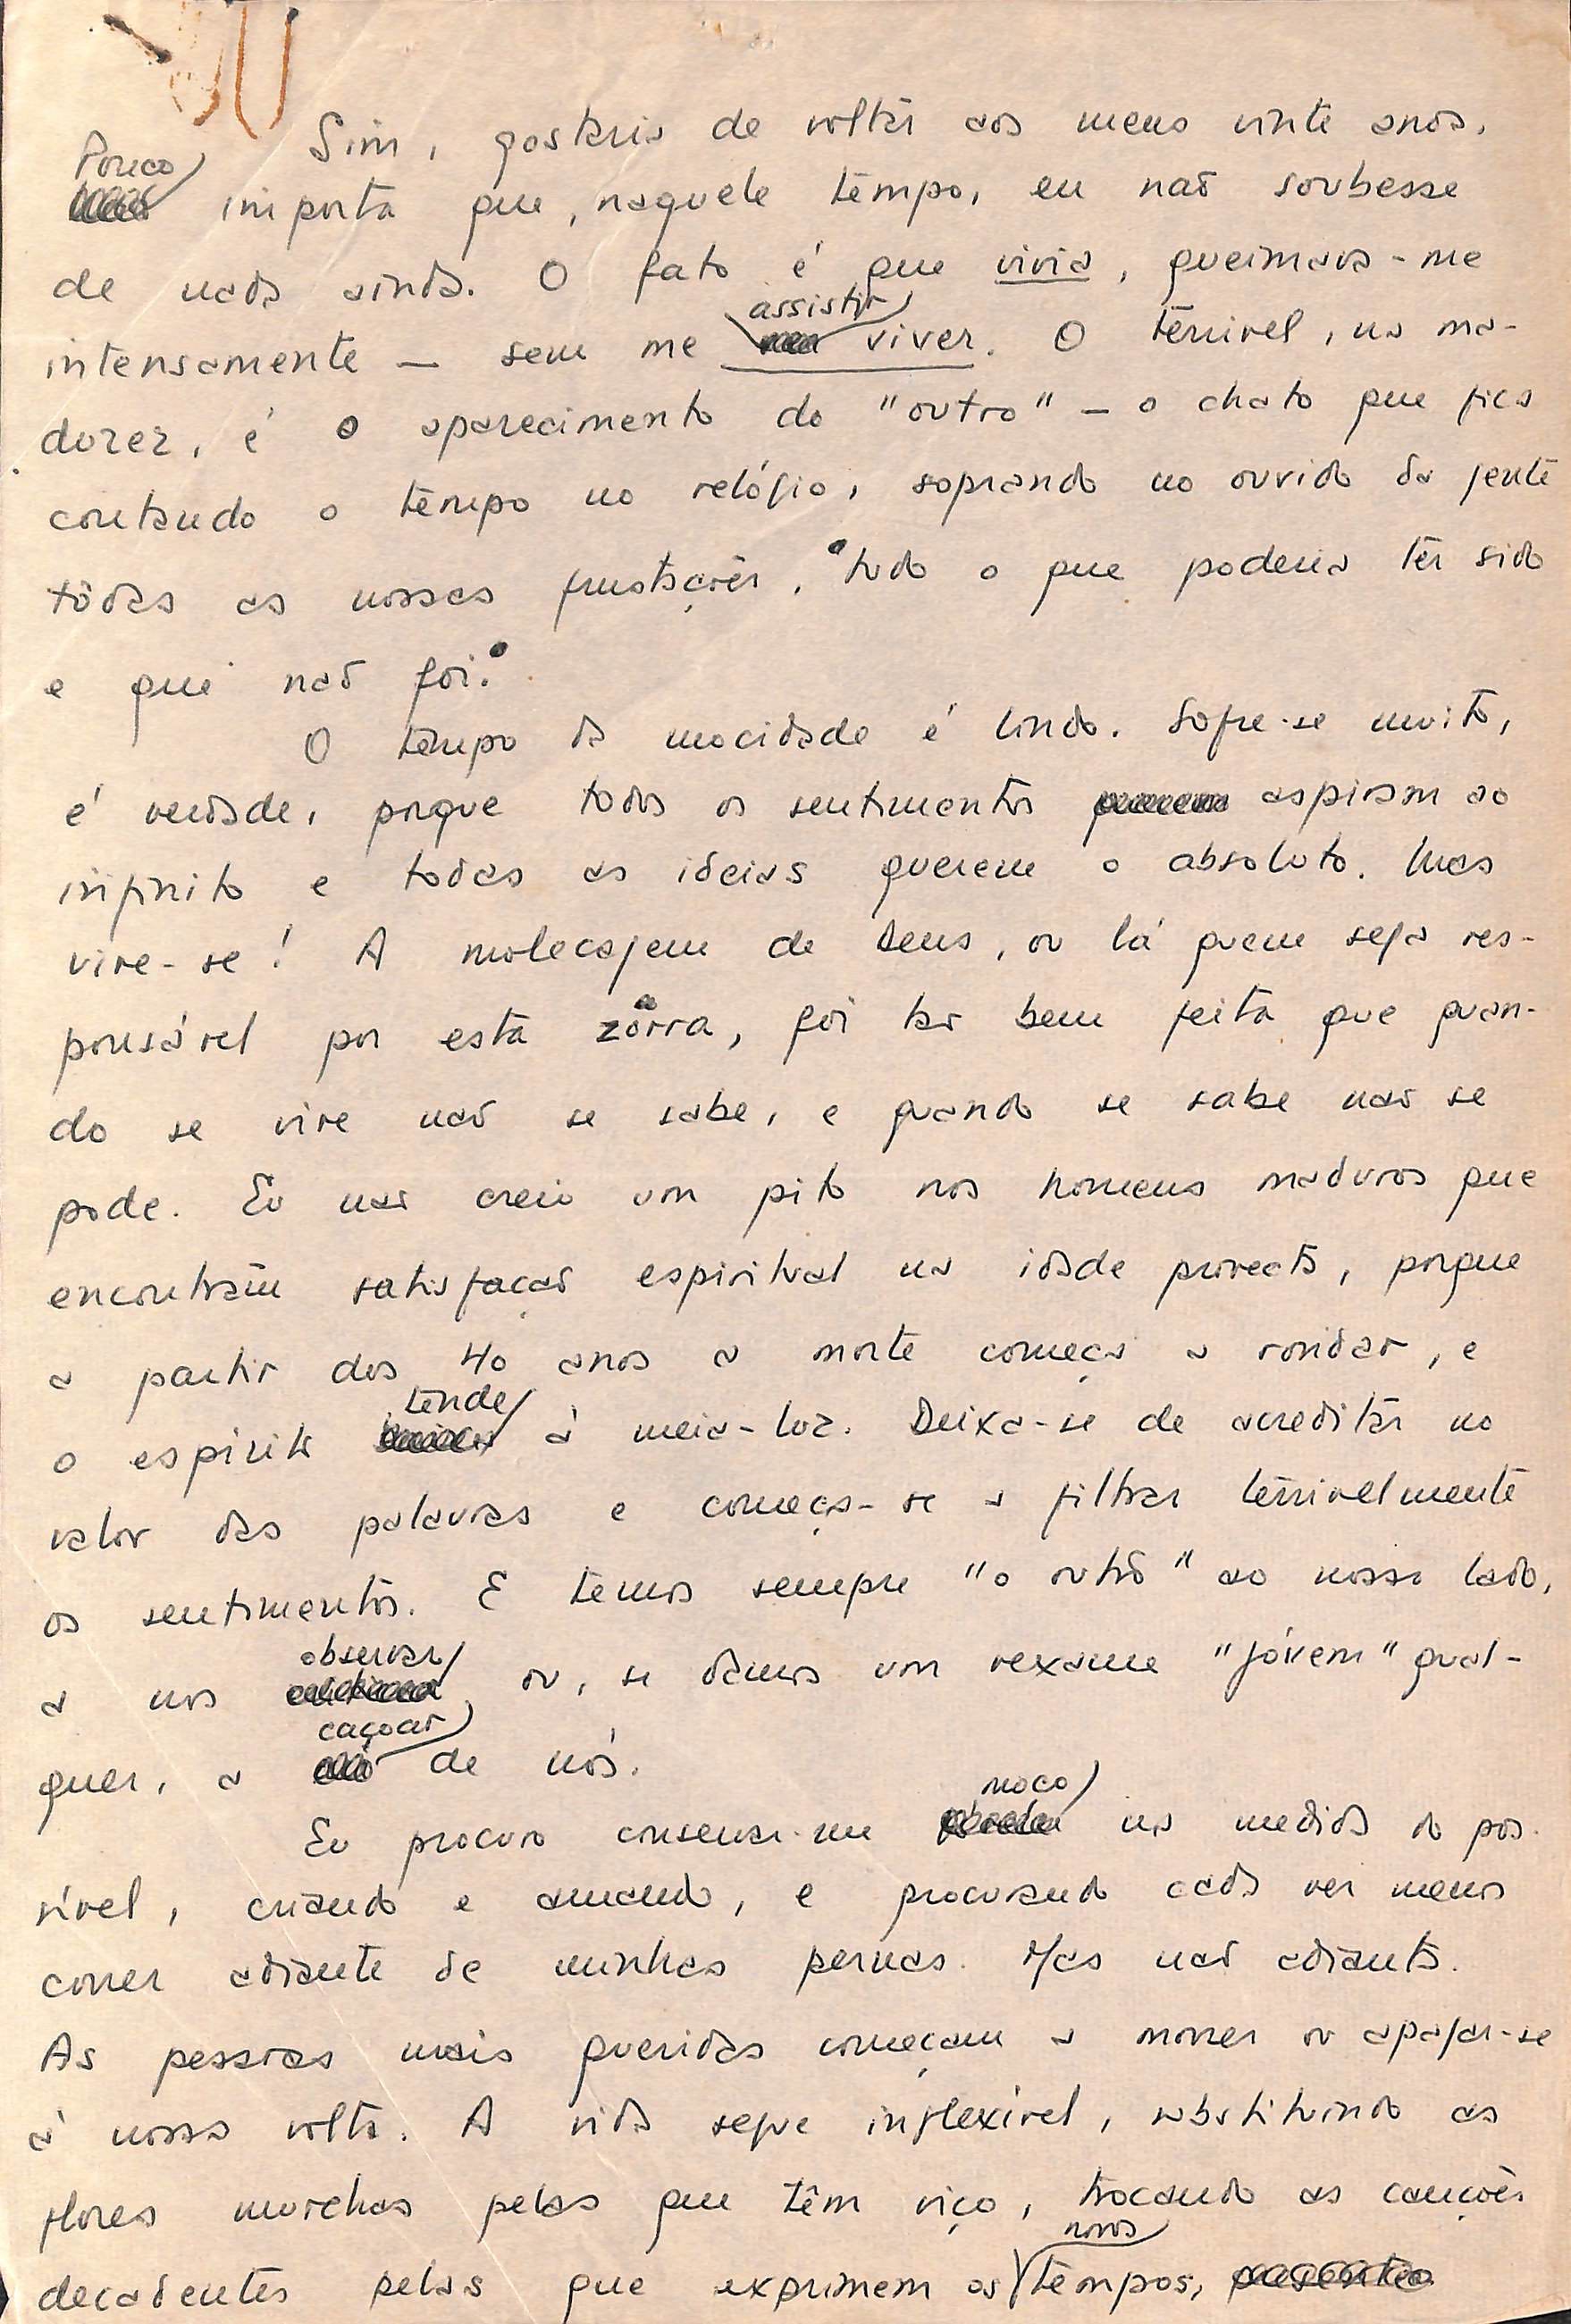 Sim, gostaria de voltar aos meus vinte anos.
Pouco importa que, naquele tempo, eu não soubesse
de nada ainda. O fato é que vivia, queimava-me
intensamente — sem me assistir viver. O terrível, na ma-
durez, é o aparecimento do "outro" — o chato que fica
contando o tempo no relógio, soprando no ouvido da gente
tôdas as nossas frustrações, tudo o que poderia ter sido
e que não foi.
O tempo da mocidade é lindo. Sofre-se muito,
é verdade, porque todos os sentimentos aspiram ao
infinito e todas as ideias querem o absoluto. Mas
vive-se! A molecagem de Deus, ou lá quem seja res-
ponsável por esta zorra, foi tão bem feita que quan-
do se vive não se sabe, e quando se sabe não se
pode. Eu não creio um pito nos homens maduros que
encontram satisfação espiritual na idade provecta, porque
a partir dos 40 anos a morte começa a rondar, e
o espírito tende à meia-luz. Deixa-se de acreditar no
valor das palavras e começa-se a filtrar terrivelmente
os sentimentos. E temos sempre "o outro" ao nosso lado,
a nos observar, ou, se damos um vexame "jóvem" qual-
quer, a caçoar de nós.
Eu procuro conservar-me moço na medida do pos-
sível, criando e amando, e procurando cada vez menos
correr adiante de minhas pernas. Mas não adianta.
As pessoas mais queridas começam a morrer ou apagar-se
à nossa volta. A vida segue inflexível, substituindo as
flores murchas pelas que têm viço, trocando as canções
decadentes pelas que exprimem os novos tempos,